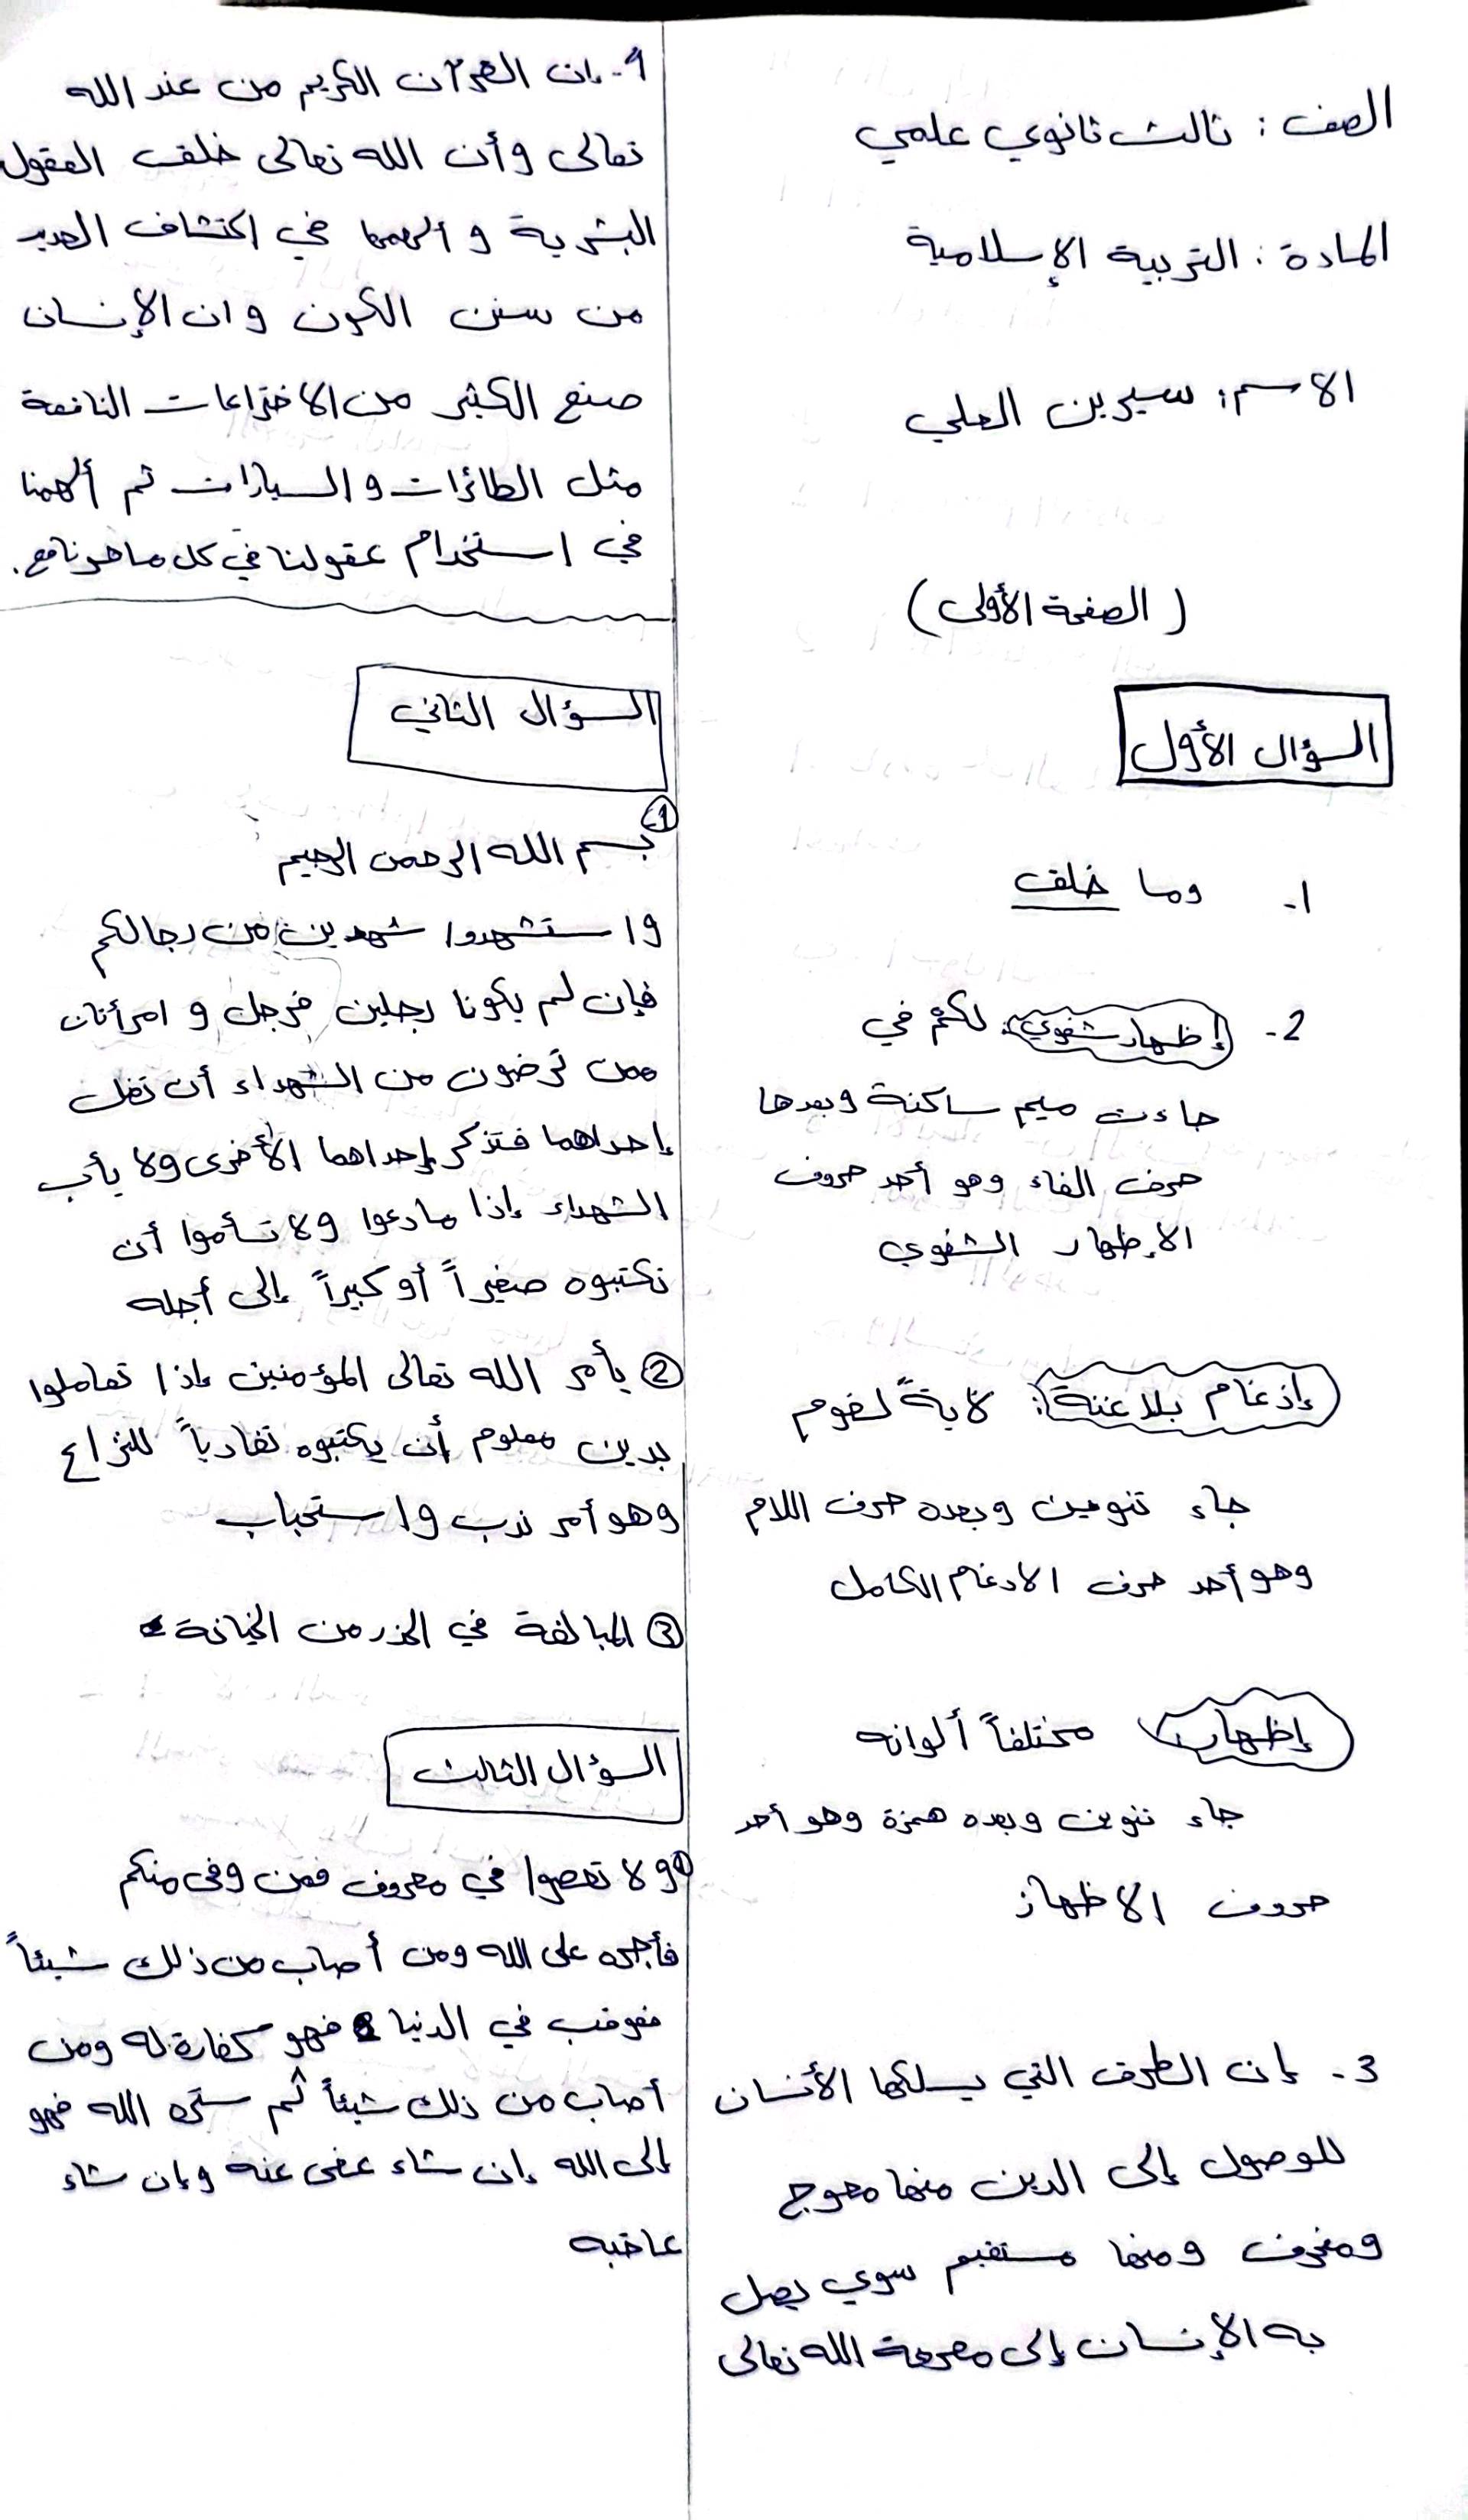 الصف : ثالث ثانوي علمي
المادة : التربية الإسلامية
الاسم : سيرين العلي
( الصفحة الأولى )
السؤال الأول
1- وما خلق
2- إظهار شفوي : لكم في
جاءت ميم ساكنة وبعدها
حرف الفاء وهو أحد حروف
الإظهار الشفوي
إدغام بلا غنة : لآيةً لقوم
جاء تنوين وبعده حرف اللام
وهو أحد حرف الادغام الكامل
إظهار : مختلفاً ألوانه
جاء تنوين وبعده همزة وهو أحد
حروف الاظهار
3- إن الطرق التي يسلكها الأنسان
للوصول إلى الدين منها معوج
ومنحرف ومنها مستقيم سوي يصل
به الإنسان إلى معرفة الله تعالى
4- إن القرآن الكريم من عند الله
تعالى وأن الله تعالى خلق العقول
البشرية وألهمها في اكتشاف العديد
من سنن الكون وان الإنسان
صنع الكثير من الاختراعات النافعة
مثل الطائرات والسيارات ثم ألهمنا
في استخدام عقولنا في كل ما هو نافع .
السؤال الثاني
1-
بسم الله الرحمن الرحيم
واستشهدوا شهدين من رجالكم
فإن لم يكونا رجلين فرجل وامرأتان
ممن ترضون من الشهداء أن تضل
إحداهما فتذكر إحداهما الأخرى ولا يأب
الشهداء إذا ما دعوا ولا تسأموا أن
تكتبوه صغيراً أو كبيراً إلى أجله
2 يأمر الله تعالى المؤمنين إذا تعاملوا
بدين معلوم أن يكتبوه تفادياً للنزاع
وهو أمر ندب واستحباب
3 المبالغة في الحذر من الخيانة
السؤال الثالث
1 ولا تعصوا في معروف فمن وفى منكم
فأجره على الله ومن أصاب من ذلك شيئاً
فعوقب في الدنيا فهو كفارة له ومن
أصاب من ذلك شيئاً ثم ستره الله فهو
إلى الله إن شاء عفى عنه وإن شاء
عاقبه